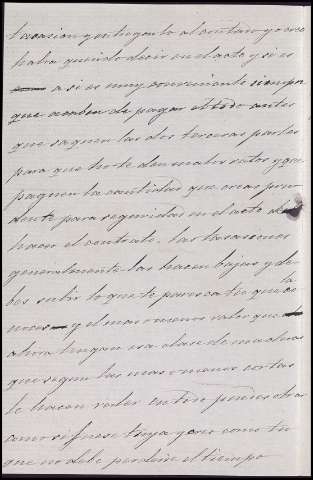 tasacion que hagan lo al contrario creo
habra querido decir en el acto y si es
a si es muy conveniente siempre
que acaben de pagar el todo antes
que saquen las dos terceras partes
para que no te den malos ratos y que
paguen la cantidad que creas pru
dente para seguridad en el acto de
hacer el contrato. las tasaciones
generalmente las hacen bajas y de
bes subir lo que te parezca tu que la co
noces y el mas o menos valor que
ahora tengan esa clase de maderas
que segun las mas o menos cortas
le hacen valer en ton puedes obrar
como si fuese tuya y creo como tu
que no debe perderse el tiempo